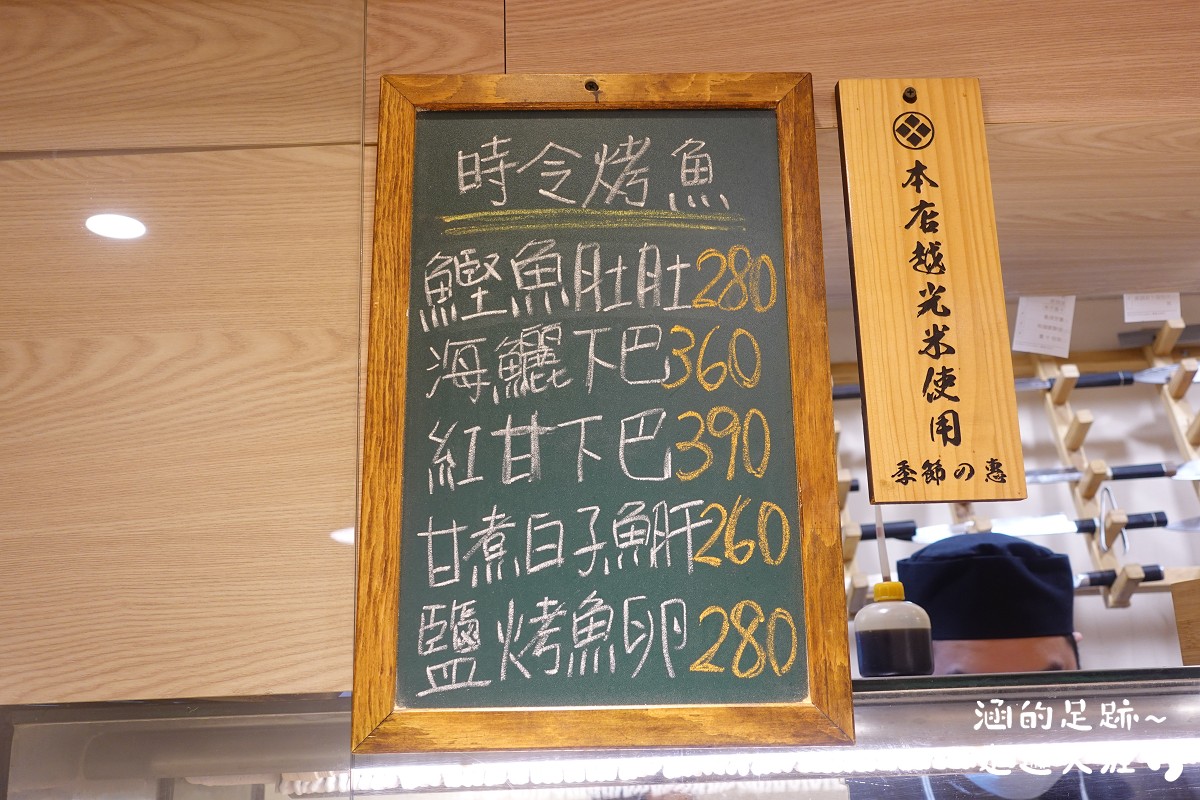 時令烤魚
鰹魚肚肚280
海鱺下巴360
紅甘下巴390
甘煮白子魚肝260
鹽烤魚卵280
本店越光米使用
季節の惠
涵的足跡~